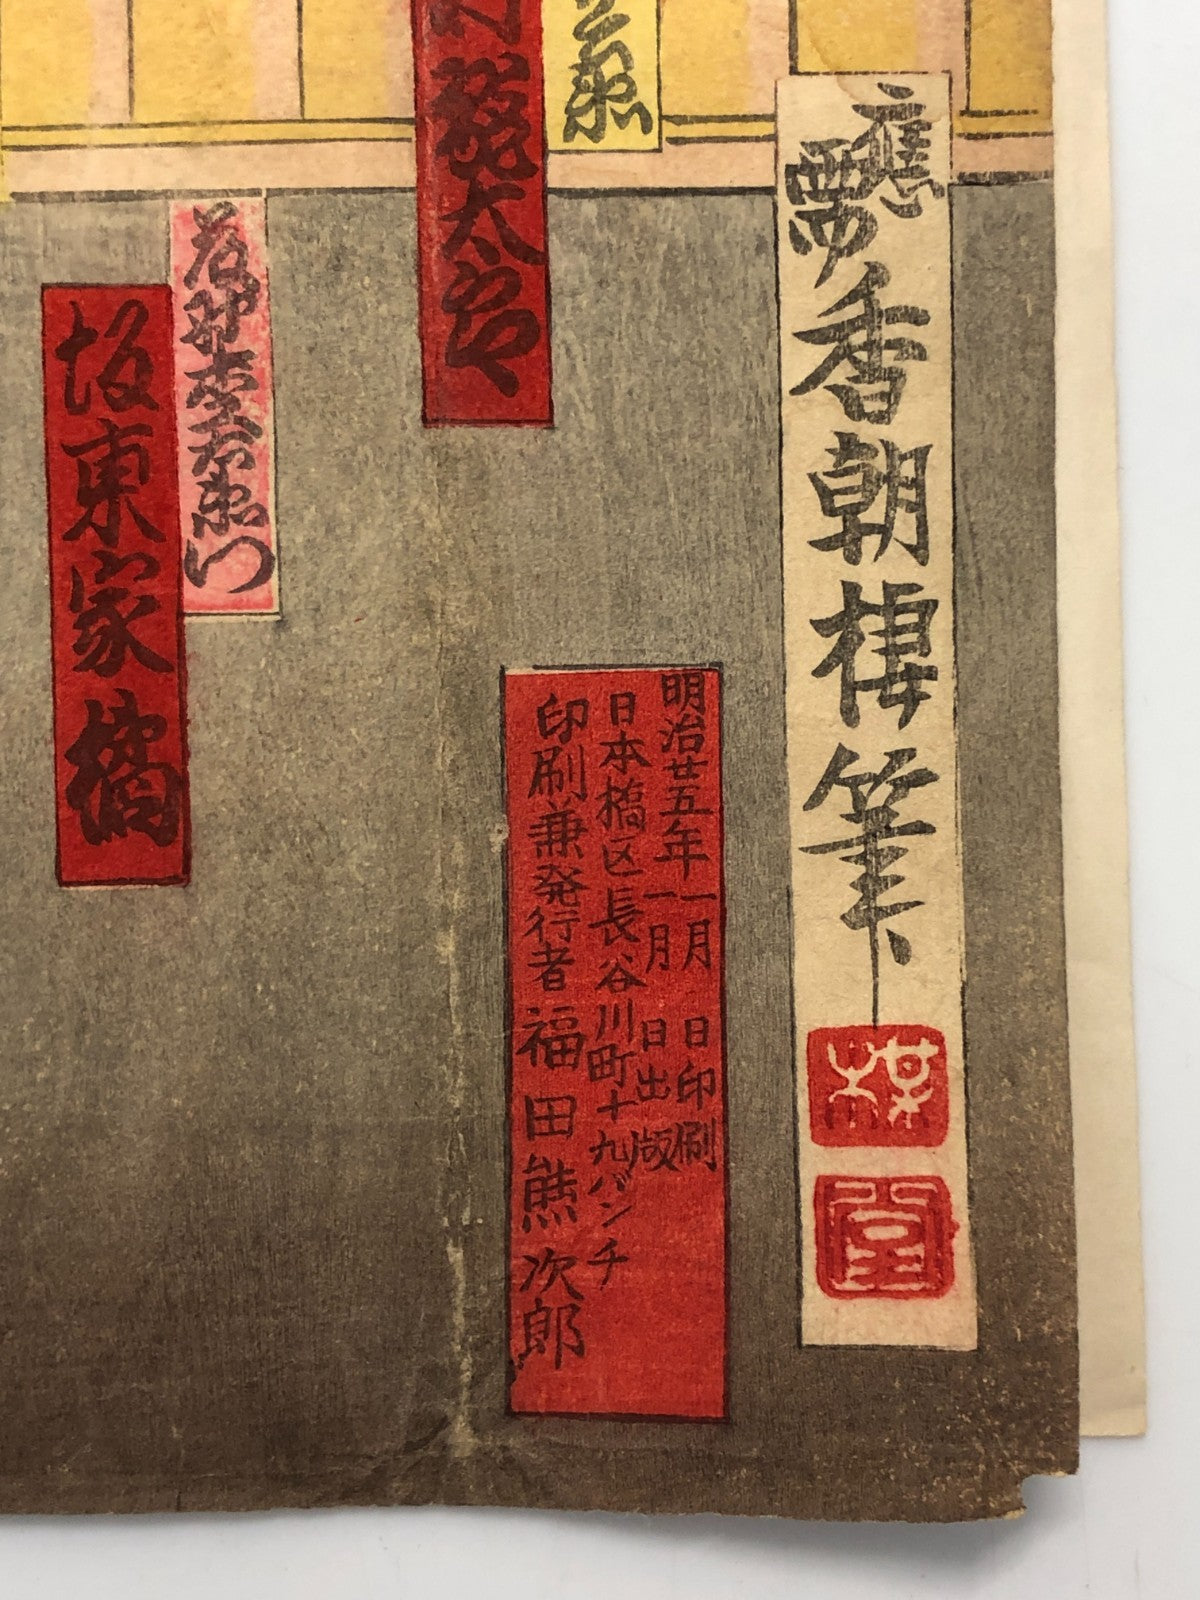 應需
香朝楼筆
楳
堂
明治廿五年一月　日印刷
一月　日出版
日本橋区長谷川町十九バンチ
印刷兼発行者福田熊次郎
太郎
坂東家橘